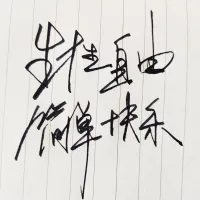 生性自由
简单快乐